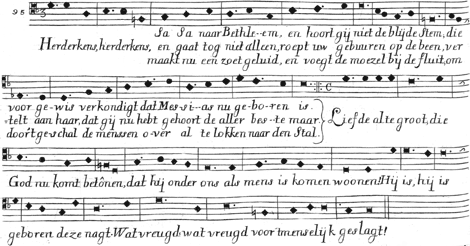 95
Sa Sa naar Bethle-em, en hoort gij niet de blijde stem, die
Herderkens, herderkens, en gaat tog niet alleen, roept uw gebuuren op de been, ver
maakt nu een zoet geluid, en voegt de moezel bij de fluit, om
voor ge-wis verkondigt dat Mes-si-as nu ge-bo-ren is.
-stelt aan haar, dat gij nu hebt gehoort de aller bes-te maar.
Liefde al te groot, die
doort geschal de menssen o-ver al te lokken naar den Stal
God nu komt belônen, dat hij onder ons als mens is komen woonen! Hij is, hij is
geboren deze nagt. Wat vreugd wat vreugd voor tmenselijk geslagt!